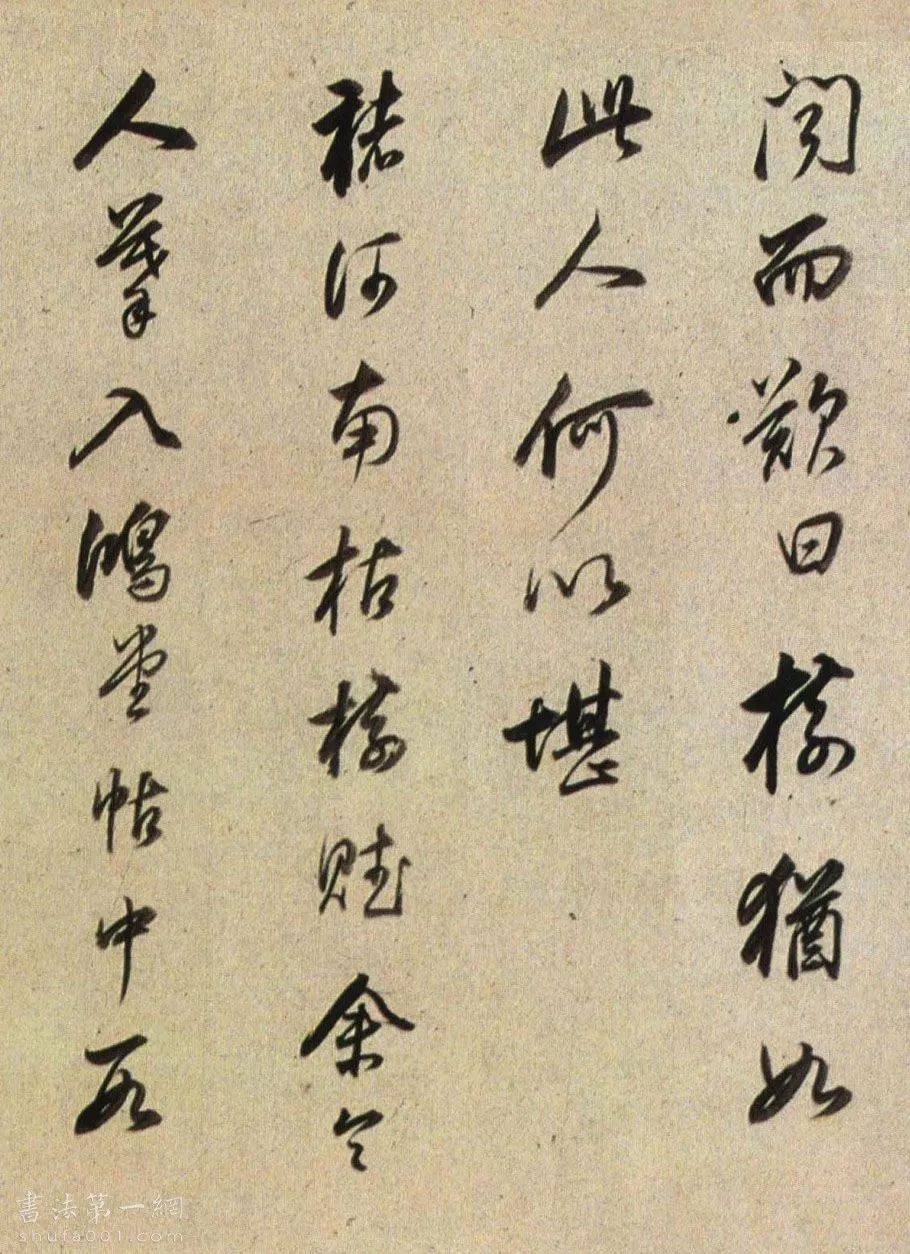 聞而歎曰樹猶如
此人何以堪
褚河南枯樹賦余令
人摹入鴻堂帖中
書法第一網
shufa001.com